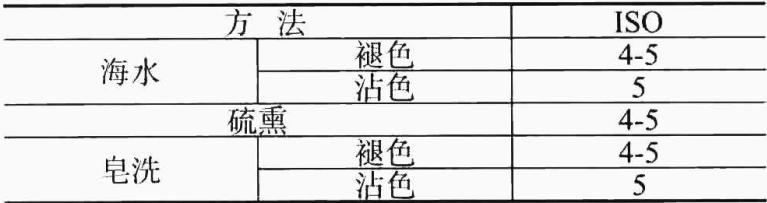 方 法 ISO
海水 褪色 4-5
沾色 5
硫熏 4-5
皂洗 褪色 4-5
沾色 5